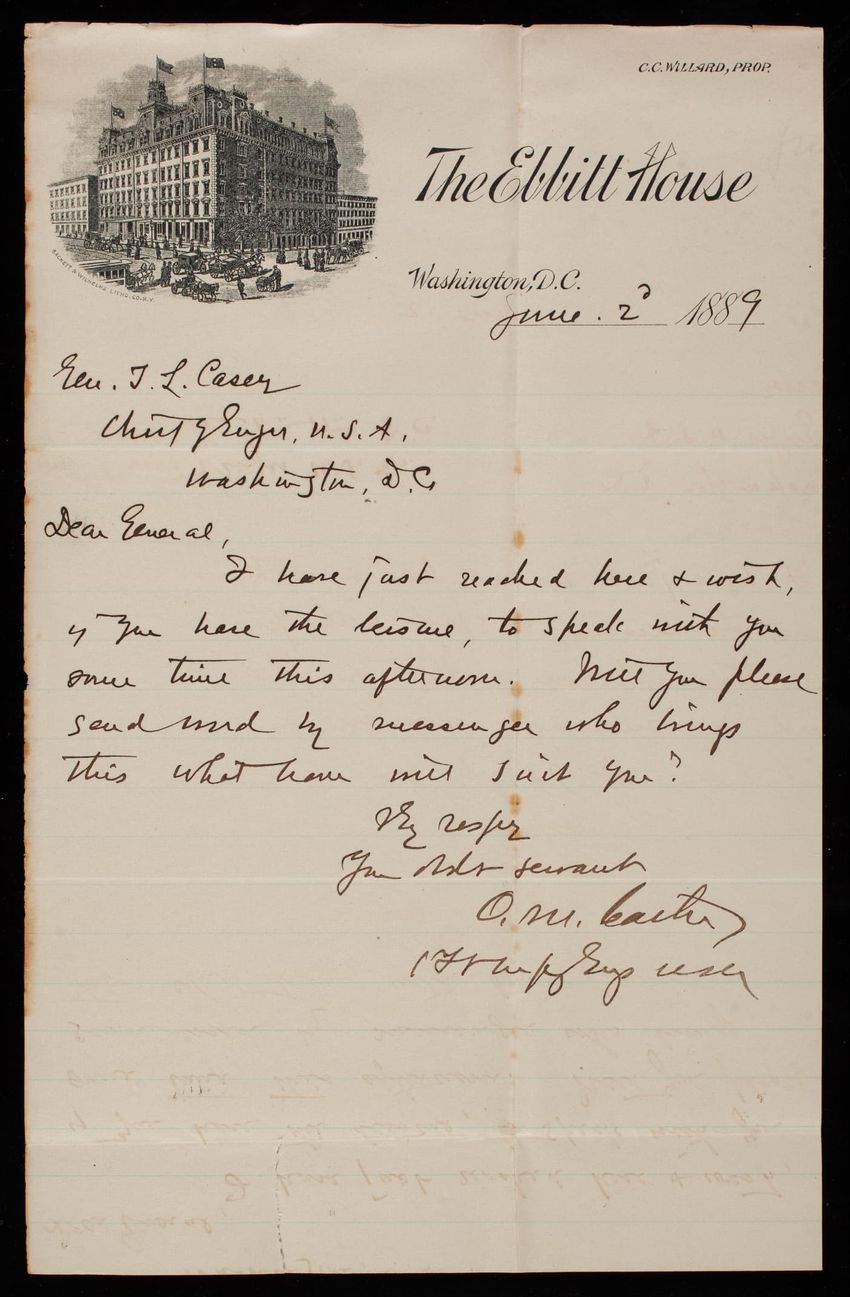 C.C. WILLARD, PROP.
The Ebbitt House
Washington, D.C.
SACKETT & WILHELMS LITHO. CO. N.Y.
June. 2d 1889
Gen. T. L. Casey
Chief of Engrs, U.S.A.,
Washington, D.C.
Dear General,
I have just reached here & wish,
if you have the leisure, to speak with you
some time this afternoon. Will you please
send word by messenger who brings
this what hour will suit you?
Very respy
Your obdt servant
O. M. Carter
1st Lt Corps of Engrs USA